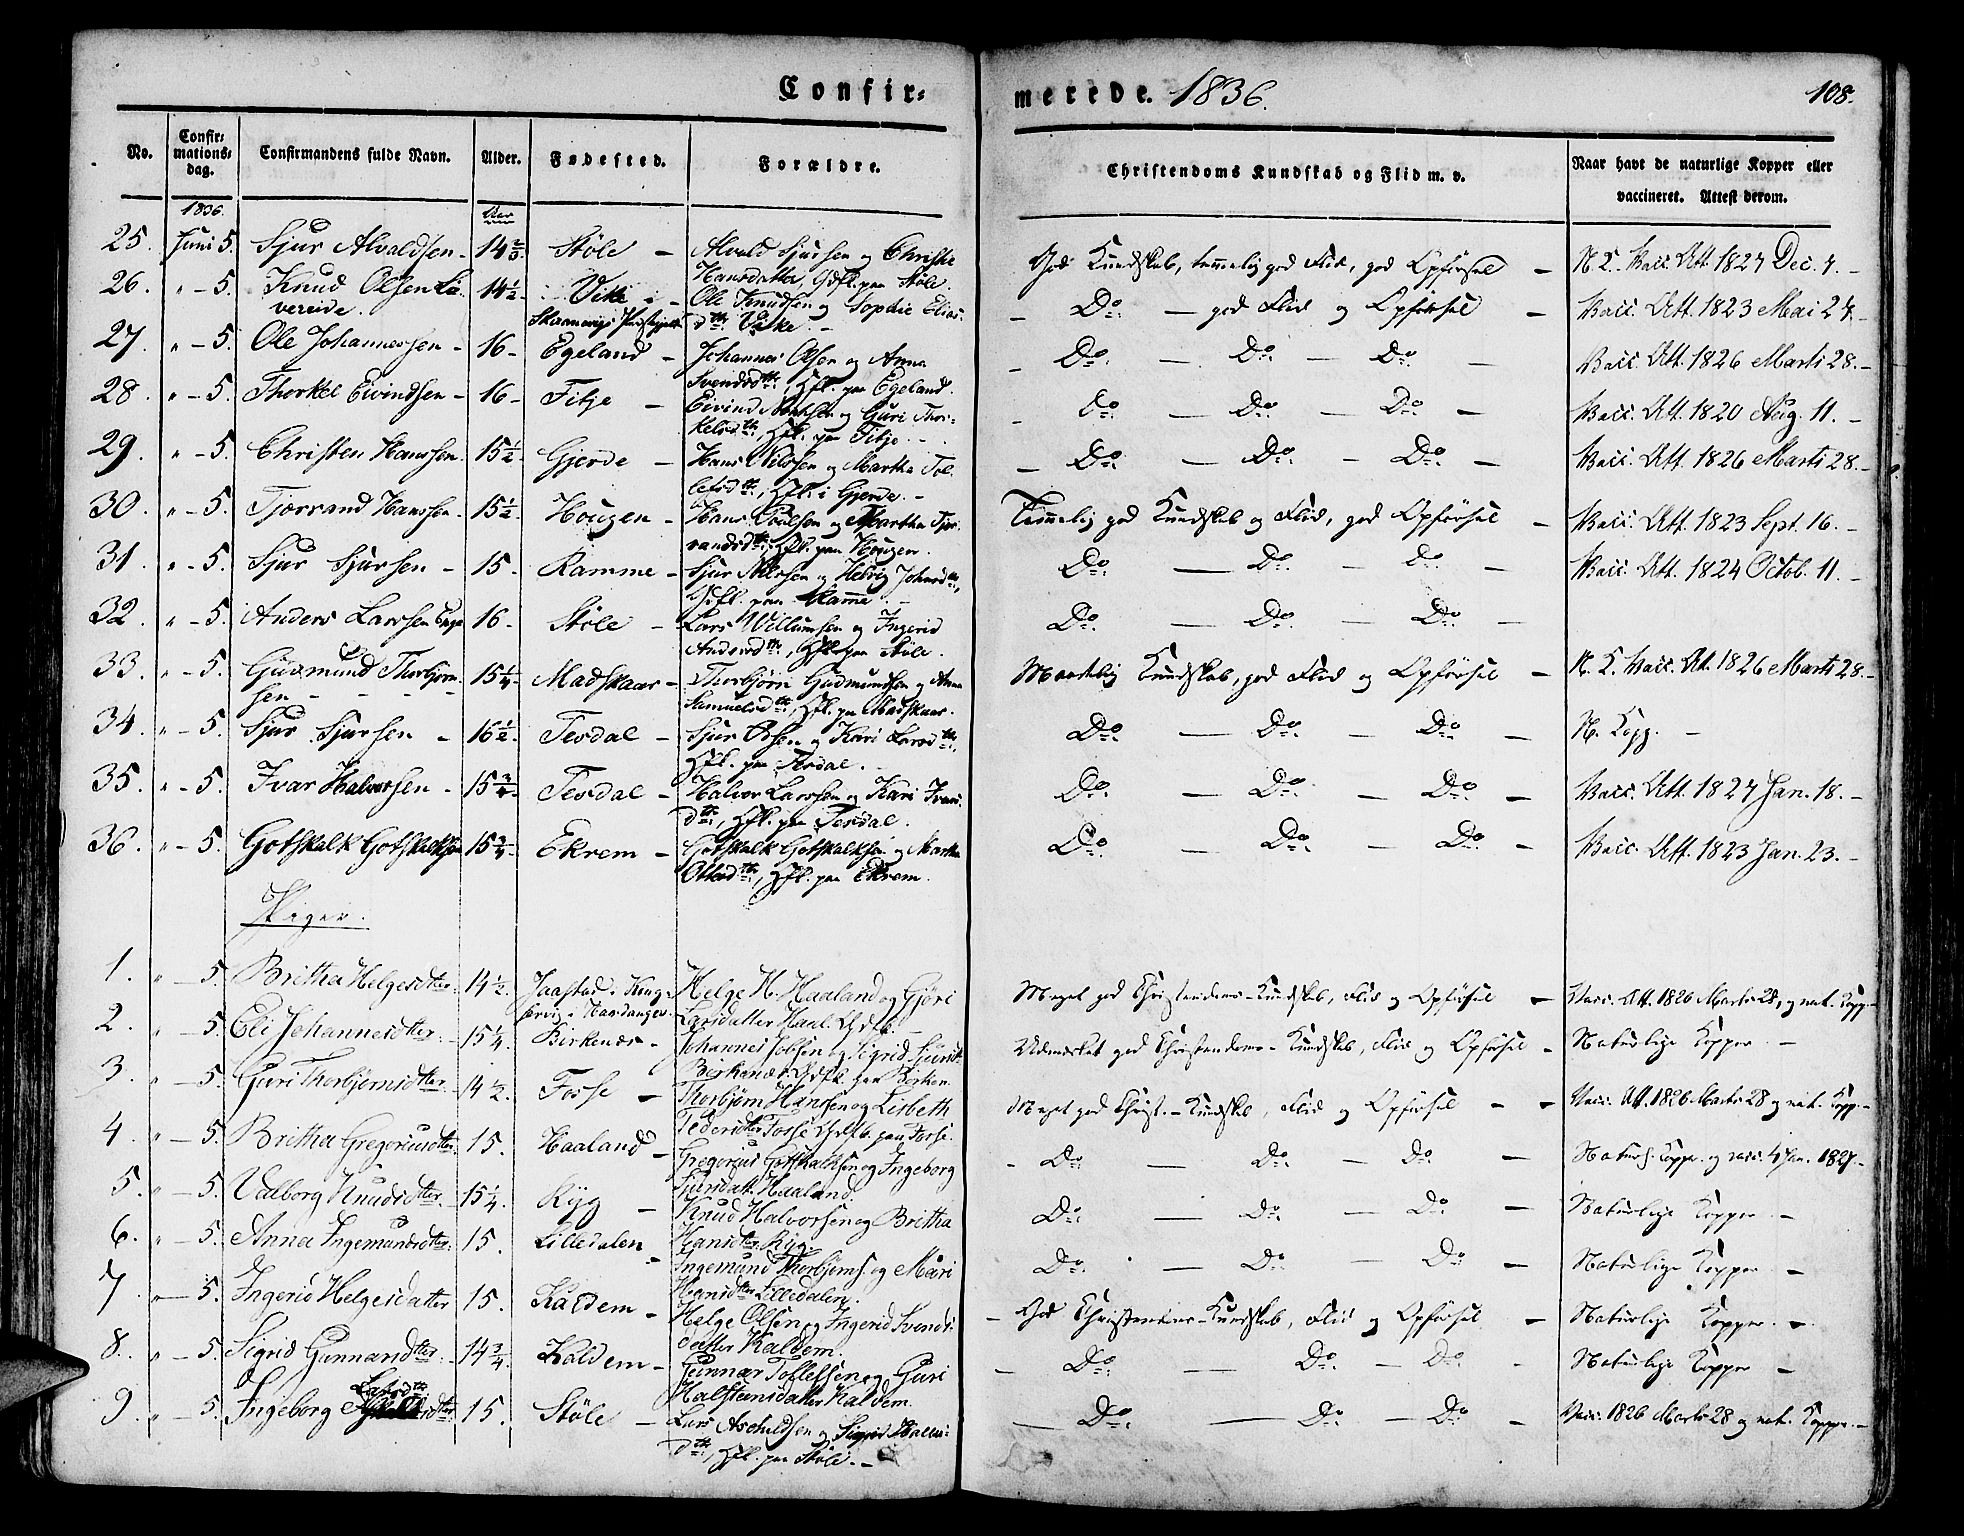 Confir=
merede. 1836.
108.
No.
Confir=
mations=
dag.
Confirmandens fulde Navn.
Alder.
Fødested.
Forældre.
Christendoms Kundskab og Flid m. v.
Naar havt de naturlige Kopper eller
vaccineret. Attest derom.
1836.
Aar
25. Juni 5. Sjur Alvaldsen 14 2/3. Støle Alvald Sjursen og Christie
Hansdatter, Gdfl. paa Støle.
God Kundskab, temmelig god Flid, god Opførsel N. K. Vacc. Att. 1827 Dec. 4.
26. " 5. Knud Olsen Lø-
vereide. 14 1/2. Vike Ole Knudsen og Sophie Elias-
dttr. Vike.
Do. god Flid og Opførsel Vacc. Att. 1823 Mai 24.
27. " 5. Ole Johannessen 16 Egeland Johannes Olsen og Anna
Svendsdttr, Hfl. paa Egeland.
Do. Do. Do. Vacc. Att. 1826 Marts 28.
28. " 5. Thorkel Eivindsen 16 Fitje Eivind og Guri Thor-
kelsdttr, Hfl. paa Fitje.
Do. Do. Do. Vacc. Att. 1820 Aug. 11.
29. " 5. Christen Hanssen 15 1/2. Gjerde Hans Nilssen og Martha Tol-
lefsdttr, Hfl. i Gjerde.
Do. Do. Do. Vacc. Att. 1826 Marts 28.
30. " 5. Tjerrand Hanssen 15 1/2. Hougen Hans Poulsen og Martha Tjer-
randsdttr, Hfl. paa Hougen.
Temmelig god Kundskab og Flid, god Opførsel Vacc. Att. 1823 Sept. 16.
31. " 5. Sjur Sjursen 15. Ramme Sjur Nilssen og Helvig Johnsdttr,
Gdfl. paa Ramme.
Do. Do. Do. Vacc. Att. 1824 Octob. 11.
32. " 5. Anders Larssen 16 Støle Lars Villumsen og Ingerid
Andersdttr, Hfl. paa Støle.
Do. Do. Do.
33. " 5. Gudmund Thorbjørn-
sen 15 1/4. Madskaar Thorbjørn Gudmundsen og Anna
Samuelsdttr, Hfl. paa Madskaar.
Maadelig Kundskab, god Flid og Opførsel N. K. Vacc. Att. 1826 Marts 28.
34. " 5. Sjur Sjursen 16 1/2. Tesdal Sjur Olsen og Kari Larsdttr,
Hfl. paa Tesdal.
Do. Do. Do. N. Kopp.
35. " 5. Ivar Halvorsen 15 3/4. Tesdal Halvor Larssen og Kari Ivars-
dttr, Hfl. paa Tesdal.
Do. Do. Do. Vacc. Att. 1827 Jan. 18.
36. " 5. Gotskalk Gotskalksen 15 3/4. Ekrem Gotskalk Gotskalksen og Martha
Ottesdttr, Hfl. paa Ekrem.
Do. Do. Do. Vacc. Att. 1823 Jan. 23.
Piger.
1. " 5. Britha Helgesdtter 14 1/2. Jaastad i King-
servig i Hardanger. Helge H. Haaland og Gjøri
Larsdatter Haal. Gdfb.
Meget god Christendoms-Kundskab, Flid og Opførsel Vacc. Att. 1826 Marts 28, og nat. Kopp.
2. " 5. Eli Johannesdtter 15 1/4. Birkenæs Johannes Jobsen og Sigrid Sjursdt
Birkenæs Gdfb. paa Birken.
Udmærket god Christendoms-Kundskab, Flid og Opførsel Naturlige Kopper.
3. " 5. Guri Thorbjørnsdtter 14 1/2. Fosse Thorbjørn Hansen og Lisbeth
Pedersdtter Fosse Gdfb. paa Fosse.
Meget god Christ.-Kundskab, Flid og Opførsel Vacc. Att. 1826 Marts 28 og nat. Kopp.
4. " 5. Britha Gregoriusdtter 15. Haaland Gregorius Gotskalksen og Ingeborg
Sjursdatt. Haaland.
Do. Do. Do. Naturl. Kopper og vacc. 4 Jan. 1827.
5. " 5. Valborg Knudsdtter 15 1/4. Ryg Knud Halvorsen og Britha
Hansdtter Ryg.
Do. Do. Do. Naturlige Kopper.
6. " 5. Anna Ingemundsdtter 15. Lilledalen Ingemund Thorbjørns. og Mari
Hansdtter Lilledalen.
Do. Do. Do. Naturlige Kopper
7. " 5. Ingerid Helgesdatter 15. Kaldem Helge Olsen og Ingerid Svends-
datter Kaldem.
God Christendoms-Kundskab, Flid og Opførsel Naturlige Kopper.
8. " 5. Sigrid Gunnarsdtter 14 3/4. Kaldem Gunnar Tollefsen og Guri
Halsteinsdatter Kaldem.
Do. Do. Do. Naturlige Kopper
9. " 5. Ingeborg Larsdttr 15. Støle Lars Aschildsen og Sigrid
dttr, Hfl. paa Støle.
Do. Do. Do. Vacc. 1826 Marts 28 og nat. Kopper.